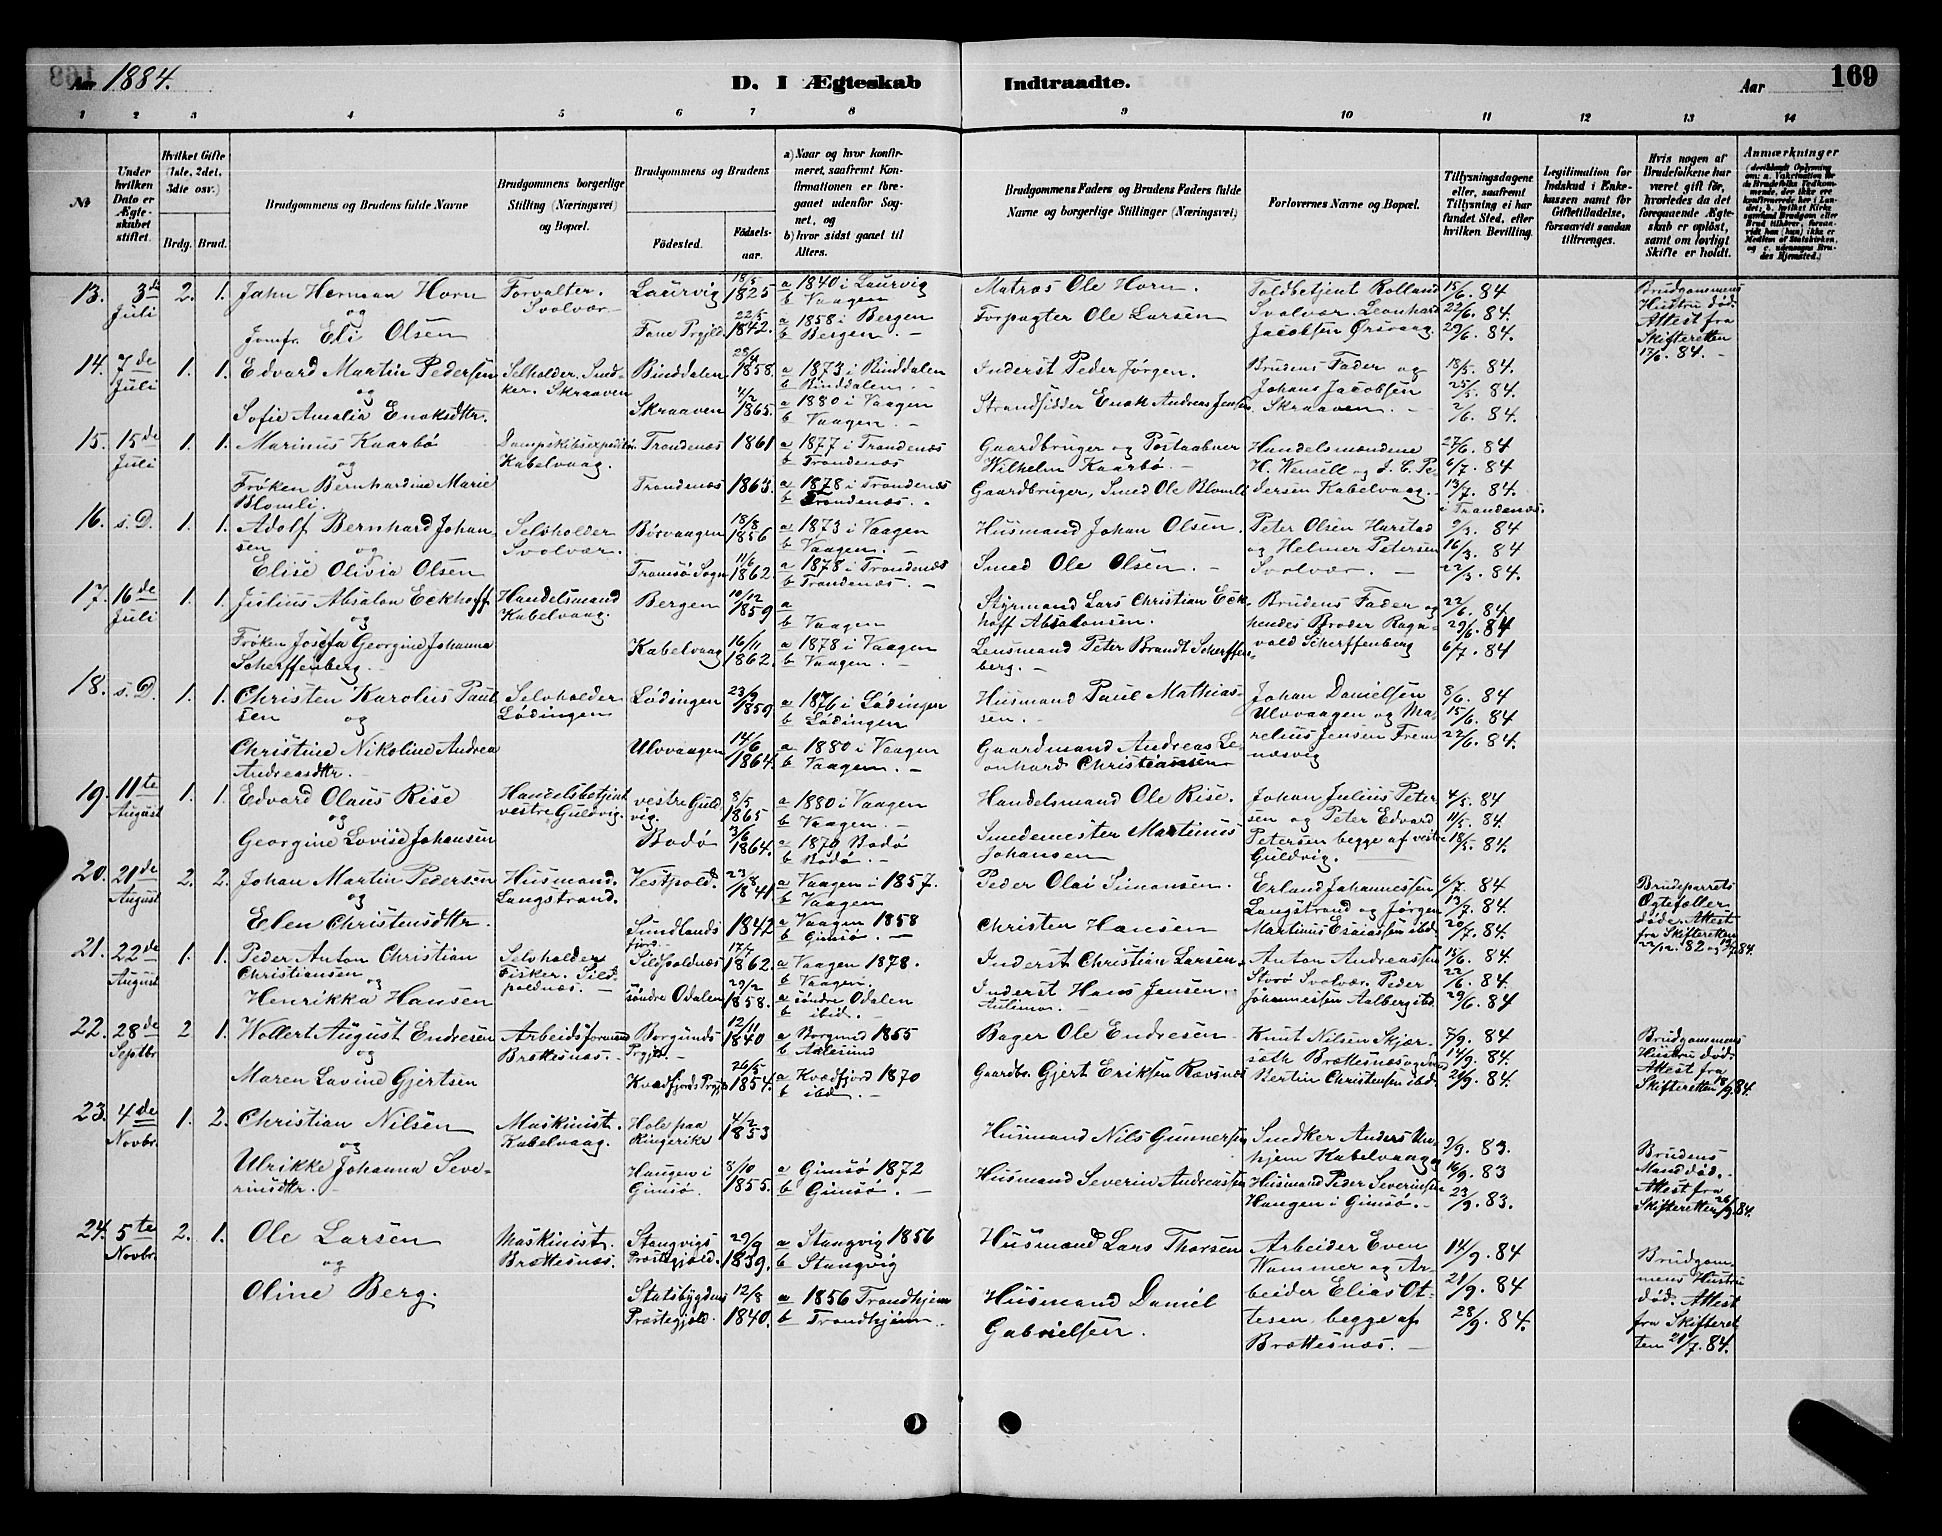 Aar 1884.
D. I Ægteskab Indtraadte.
Aar 169
1 2 3 4 5 6 7 8 9 10 11 12 13 14
№
Under hvilken Dato er Ægteskabet stiftet.
Hvilket Gifte (1ste, 2det, 3die osv.)
Brdg. Brud.
Brudgommens og Brudens fulde Navne
Brudgommens borgerlige Stilling (Næringsvei) og Bopæl.
Brudgommens og Brudens
Fødested.
Fødselsaar.
a) Naar og hvor konfirmeret, saafremt Konfirmationen er foregaaet udenfor Sognet, og
b) hvor sidst gaaet til Alters.
Brudgommens Faders og Brudens Faders fulde Navne og borgerlige Stillinger (Næringsvei)
Forlovernes Navne og Bopæl.
Tillysningsdagene eller, saafremt Tillysning ei har fundet Sted, efter hvilken Bevilling.
Legitimation for Indskud i Enkekassen samt for Giftetilladelse, forsaavidt saadan tiltrænges.
Hvis nogen af Brudefolkene har været gift før, hvorledes da det foregaaende Ægteskab er opløst, samt om lovligt Skifte er holdt.
Anmærkninger
13. 3die Juli 2. 1.
Jahn Herman Horn
og
Jomfr. Eli Olsen
Forvalter. Svolvær
Laurvig 18/5 1825
a 1840 i Laurvig
b Vaagen
Fane Prgjld. 22/5 1842.
a 1858 i Bergen
b Bergen. -
Matros Ole Horn.
Forpagter Ole Larsen
Toldbetjent Rolland
Svolvær. Leonhard
Jacobsen Ørsvaag.
15/6. 84
22/6. 84.
29/6. 84.
Brudgommens
Hustru død.
Attest fra
Skifteretten
17/6. 84. -
14. 7de Juli 1. 1.
Edvard Martin Pedersen
og
Sofie Amalia Enoksdtr.
Selholder. Snedker. Skraaven
Binddalen 28/4 1858.
a 1873 i Binddalen
b Binddalen. -
Skraaven 4/2 1865.
a 1880 i Vaagen
b Vaagen. -
Inderst Peder Jørgen.
Strandsidder Enok Andreas Jensen
Brudens Fader og
Johans Jacobsen
Skraaven. -
18/5. 84.
25/5. 84.
2/6. 84.
15. 15de Juli 1. 1.
Marinus Kaarbø
og
Frøken Bernhardine Marie
Blomli.
Dampskibsexpeditør
Kabelvaag.
Trondenæs 1861
a 1877 i Trondenæs
b Trondenæs
Trondenæs 1863.
a 1878 i Trondenæs
b Trondenæs. -
Gaardbruger og Postaabner
Wilhelm Kaarbø. -
Gaardbruger, Smed Ole Blomli
Handelsmændene
H. Wensell og J. C. Pedersen Kabelvaag. -
27/6. 84
6/7. 84
13/7. 84.
i Trondenæs.
16. s. D. 1. 1.
Adolf Bernhard Johansen
og
Elise Olivia Olsen
Selvholder
Svolvær.
Børvaagen 18/8 1856
a 1873 i Vaagen
b Vaagen. -
Tromsø Sogn 11/6 1862.
a 1878 i Trondenæs
b Trondenæs. -
Husmand Johan Olsen.
Smed Ole Olsen. -
Peter Olsen Harstad
og Helmer Petersen
Svolvær. -
9/3. 84
16/3. 84
22/3. 84.
17. 16de Juli 1. 1.
Julius Absalon Eckhoff
og
Frøken Josefa Georgine Johanna
Scherffenberg. -
Handelsmand
Kabelvaag.
Bergen 10/12 1859
a
b Vaagen
Kabelvaag 16/11 1862.
a 1878 i Vaagen
b Vaagen. -
Styrmand Lars Christian Eckhoff Absalonsen. -
Lensmand Peter Brandt Scherffenberg. -
Brudens Fader og
hendes Broder Ragnvald Scherffenberg
22/6. 84
29/6. 84
6/7. 84
18. s. D. 1. 1.
Christen Karolus Paulsen
og
Christine Nikoline Andrea
Andreasdtr. -
Selvholder
Lødingen
Lødingen 23/9 1859
a 1876 i Lødingen
b Lødingen
Ulvvaagen 14/6 1864.
a 1880 i Vaagen
b Vaagen. -
Husmand Paul Mathiassen. -
Gaardmand Andreas Leonhard Christiansen
Johan Danielsen
Ulvvaagen og Marelius Jensen Fremnæsvig
8/6. 84
15/6. 84
22/6. 84.
19. 11te August 1. 1.
Edvard Olaus Rise
og
Georgine Lovise Johansen
Handelsbetjent
vestre Guldvig.
vestre Guldvig. 8/5 1865
a 1880 i Vaagen
b Vaagen. -
Bodø 3/6 1864.
a 1879 Bodø
b Bodø. -
Handelsmand Ole Rise.
Smedemester Martinus
Johansen
Johan Julius Petersen og Peter Edvard
Petersen begge af vestre
Guldvig.
4/5. 84
11/5. 84.
18/5. 84.
20. 21de August 2. 2.
Johan Martin Pedersen
og
Elen Christensdtr.
Husmand.
Langstrand.
Vestpold. 23/8 1841
a Vaagen i 1857.
b Vaagen
Sundlandsfjord. 1842
a Vaagen 1858
b Gimsø. -
Peder Olai Simonsen.
Christen Hansen
Erland Johannessen
Langstrand og Jørgen
Martinus Esaiassen ibd.
6/7. 84
13/7. 84.
20/7. 84.
Brudeparrets
Ægtefæller
døde. Attest
fra Skifteretten
22/12. 82 og 12/7 84.
21. 22de August 1. 1.
Peder Anton Christian
Christiansen
og
Henrikka Hansen
Selvholder
Fisker. Sildpoldnæs. -
Sildpoldnæs 17/7 1862.
a Vaagen 1878.
b Vaagen.
søndre Odalen 29/2 1858.
a søndre Odalen
b ibid. -
Inderst Christian Larsen.
Inderst Hans Jensen.
Anton Andreassen
Storø Svolvær. Peder
Johannessen Aalbergstd.
15/6. 84.
22/6. 84.
29/6. 84
22. 28de Septbr. 2 1.
Wollert August Endresen
og
Maren Lavine Gjertsen
Arbeidsformand
Brettesnæs. -
Borgunds Prgjld. - 12/11 1840
a Borgund 1855
b Aalesund
Kvædfjords Prgjld 26/5 1854.
a Kvædfjord 1870
b ibd. -
Bager Ole Endresen
Gaardbr. Gjert Eriksen Ravsnæs
Knut Nilsen Skjærsæth Brettesnæs og
Bertin Christensen ibd.
7/9. 84
14/9. 84.
21/9. 84.
Brudgommens
Hustru død.
Attest fra
Skifteretten 18/9. 84.
23. 4de Novbr. 1. 2.
Christian Nilsen
og
Ulrikke Johanna Severinsdtr. -
Maskinist.
Kabelvaag.
Hole paa
Ringerike 4/2 1853
Haugen i
Gimsø. 8/10 1855.
a Gimsø 1872
b Gimsø. -
Husmand Nils Gunnersen
Husmand Severin Andreassen
Snedker Anders Unhjem Kabelvaag og
Husmand Peder Severinsen
Haugen i Gimsø. -
9/9. 83.
16/9. 83
23/9. 83.
Brudens
Mand død. -
Attest fra
Skifteretten 26/9. 84.
24. 5te Novbr. 2. 1.
Ole Larsen
og
Oline Berg.
Maskinist.
Brettesnæs.
Stangvigs
Præstegjeld. 29/9 1839.
a Stangvig 1856
b Stangvig
Statsbygdens
Præstegjeld. 12/8 1840.
a 1856 Trondhjem
b Trondhjem. -
Husmand Lars Thorsen
Husmand Daniel
Gabrielsen.
Arbeider Even
Wammer og Arbeider Elias Ottesen, begge af
Brettesnæs. -
14/9. 84
21/9. 84
28/9. 84.
Brudgommens Hustru
død. Attest
fra Skifteretten 21/7. 84.